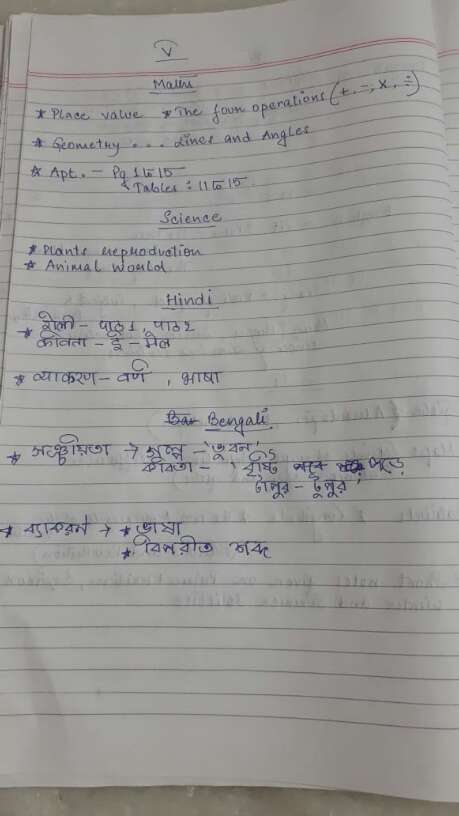 V
Maths
* Place value * The four operations (+, -, ×, ÷)
* Geometry ... Lines and Angles
* Apt. - Pg 1 to 15
* Tables : 11 to 15
Science
* Plants reproduction
* Animal world
Hindi
* शैली - पाठ 1, पाठ 2
कविता - ई - मेल
* व्याकरण - वर्ण , भाषा
Bengali
* → গল্প - 'ভুবন'
কবিতা - 'বৃষ্টি পড়ে
টাপুর - টুপুর'
* ব্যাকরন → * ভাষা
* বিপরীত শব্দ